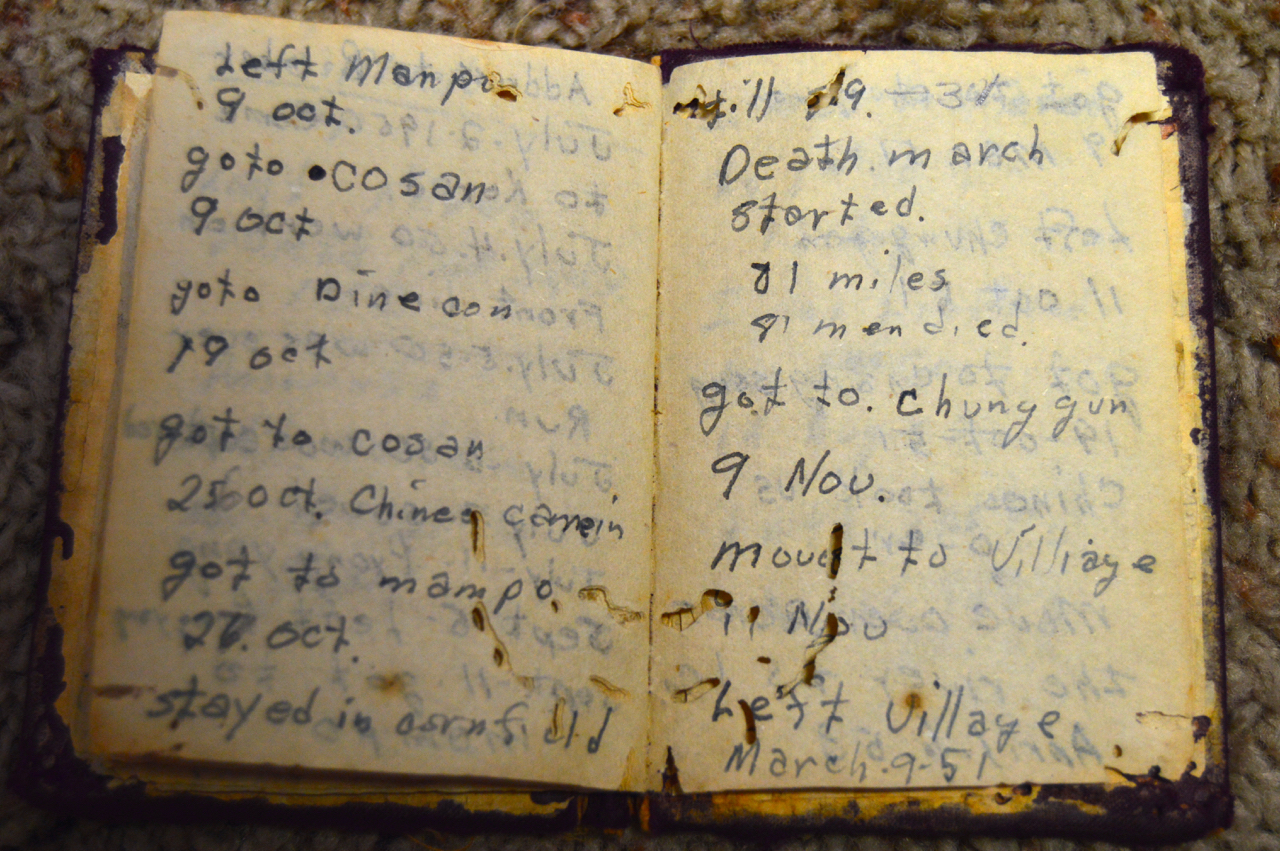 Left Manpo
9 oct.
goto cosan
9 oct
goto Dine con
19 oct
got to cosan
25 oct. Chinee camein
got to mampo.
27. oct.
stayed in cornfild
till
Death march
started.
81 miles
81 men died.
got to. chunggun
9 Nov.
mouat to Villiage
11 Nov
Left Village
March.9-51